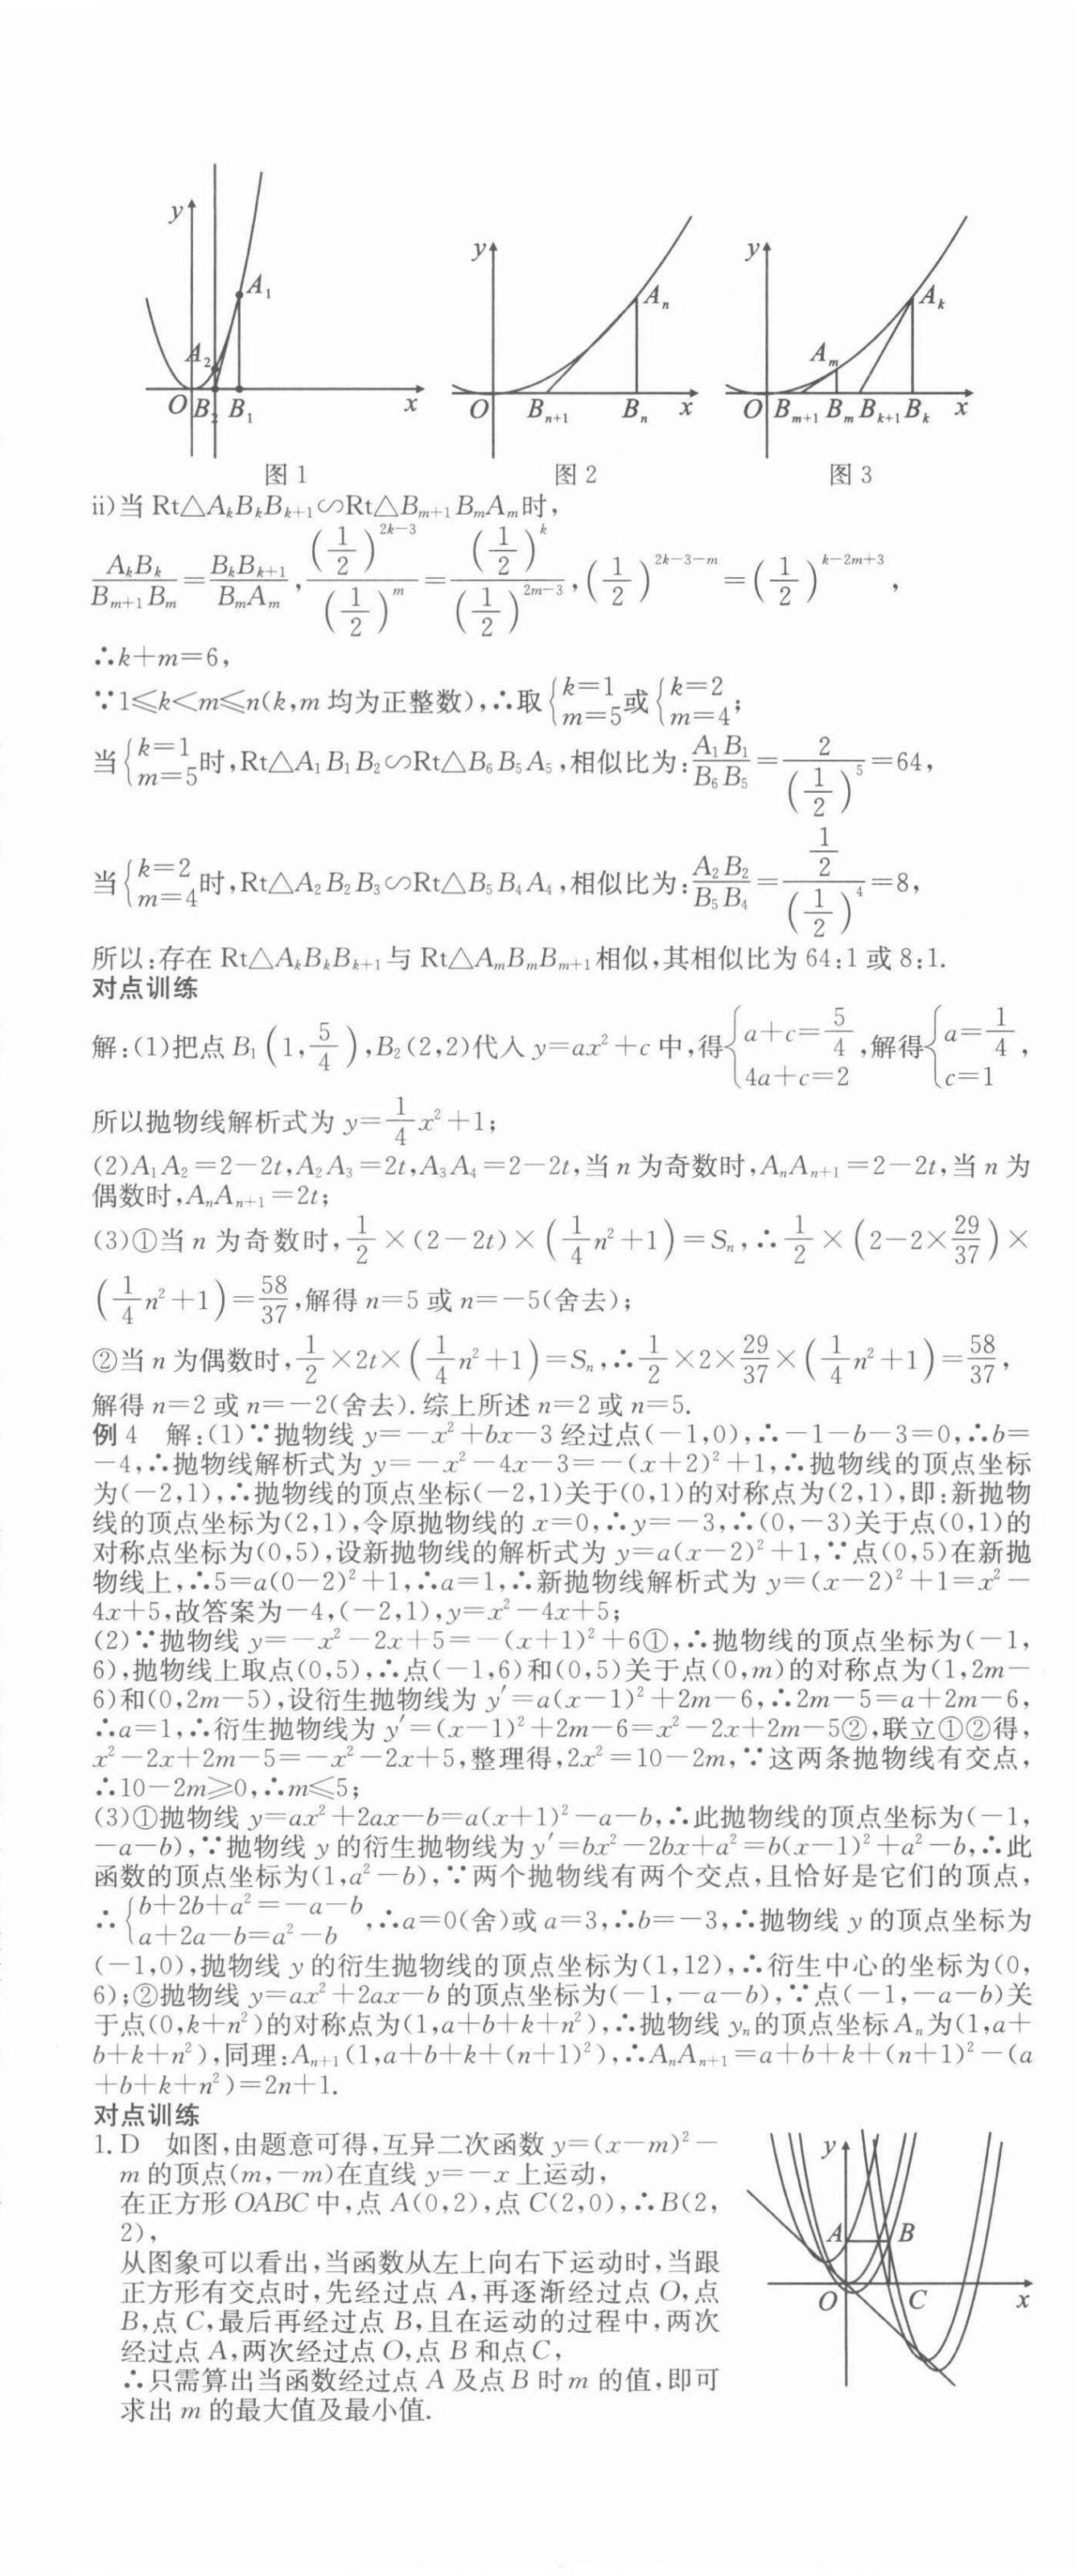 y
A₁
A₂
O B₂ B₁ x
图 1
y
Aₙ
O Bₙ₊₁ Bₙ x
图 2
y
Aₖ
Aₘ
O Bₘ₊₁ Bₘ Bₖ₊₁ Bₖ x
图 3
ii)当 Rt△AₖBₖBₖ₊₁∽Rt△Bₘ₊₁BₘAₘ时,
AₖBₖ/(Bₘ₊₁Bₘ)=BₖBₖ₊₁/(BₘAₘ), (1/2)^(2k-3)/(1/2)^m=(1/2)^k/(1/2)^(2m-3), (1/2)^(2k-3-m)=(1/2)^(k-2m+3),
∴k+m=6,
∵1≤k<m≤n(k,m 均为正整数),∴取{k=1 m=5或{k=2 m=4;
当{k=1 m=5时,Rt△A₁B₁B₂∽Rt△B₆B₅A₅,相似比为:A₁B₁/(B₆B₅)=2/(1/2)^5=64,
当{k=2 m=4时,Rt△A₂B₂B₃∽Rt△B₅B₄A₄,相似比为:A₂B₂/(B₅B₄)=(1/2)/(1/2)^4=8,
所以:存在 Rt△AₖBₖBₖ₊₁与 Rt△AₘBₘBₘ₊₁相似,其相似比为 64:1 或 8:1.
对点训练
解:(1)把点 B₁(1,5/4),B₂(2,2)代入 y=ax²+c 中,得{a+c=5/4 4a+c=2,解得{a=1/4 c=1,
所以抛物线解析式为 y=1/4x²+1;
(2)A₁A₂=2-2t,A₂A₃=2t,A₃A₄=2-2t,当 n 为奇数时,AₙAₙ₊₁=2-2t,当 n 为
偶数时,AₙAₙ₊₁=2t;
(3)①当 n 为奇数时,1/2×(2-2t)×(1/4n²+1)=Sₙ,∴1/2×(2-2×29/37)×
(1/4n²+1)=58/37,解得 n=5 或 n=-5(舍去);
②当 n 为偶数时,1/2×2t×(1/4n²+1)=Sₙ,∴1/2×2×29/37×(1/4n²+1)=58/37,
解得 n=2 或 n=-2(舍去).综上所述 n=2 或 n=5.
例 4 解:(1)∵抛物线 y=-x²+bx-3 经过点(-1,0),∴-1-b-3=0,∴b=
-4,∴抛物线解析式为 y=-x²-4x-3=-(x+2)²+1,∴抛物线的顶点坐标
为(-2,1),∴抛物线的顶点坐标(-2,1)关于(0,1)的对称点为(2,1),即:新抛物
线的顶点坐标为(2,1),令原抛物线的 x=0,∴y=-3,∴(0,-3)关于点(0,1)的
对称点坐标为(0,5),设新抛物线的解析式为 y=a(x-2)²+1,∵点(0,5)在新抛
物线上,∴5=a(0-2)²+1,∴a=1,∴新抛物线解析式为 y=(x-2)²+1=x²-
4x+5,故答案为-4,(-2,1),y=x²-4x+5;
(2)∵抛物线 y=-x²-2x+5=-(x+1)²+6①,∴抛物线的顶点坐标为(-1,
6),抛物线上取点(0,5),∴点(-1,6)和(0,5)关于点(0,m)的对称点为(1,2m-
6)和(0,2m-5),设衍生抛物线为 y′=a(x-1)²+2m-6,∴2m-5=a+2m-6,
∴a=1,∴衍生抛物线为 y′=(x-1)²+2m-6=x²-2x+2m-5②,联立①②得,
x²-2x+2m-5=-x²-2x+5,整理得,2x²=10-2m,∵这两条抛物线有交点,
∴10-2m≥0,∴m≤5;
(3)①抛物线 y=ax²+2ax-b=a(x+1)²-a-b,∴此抛物线的顶点坐标为(-1,
-a-b),∵抛物线 y 的衍生抛物线为 y′=bx²-2bx+a²=b(x-1)²+a²-b,∴此
函数的顶点坐标为(1,a²-b),∵两个抛物线有两个交点,且恰好是它们的顶点,
∴{b+2b+a²=-a-b a+2a-b=a²-b,∴a=0(舍)或 a=3,∴b=-3,∴抛物线 y 的顶点坐标为
(-1,0),抛物线 y 的衍生抛物线的顶点坐标为(1,12),∴衍生中心的坐标为(0,
6);②抛物线 y=ax²+2ax-b 的顶点坐标为(-1,-a-b),∵点(-1,-a-b)关
于点(0,k+n²)的对称点为(1,a+b+k+n²),∴抛物线 yₙ的顶点坐标 Aₙ为(1,a+
b+k+n²),同理:Aₙ₊₁(1,a+b+k+(n+1)²),∴AₙAₙ₊₁=a+b+k+(n+1)²-(a
+b+k+n²)=2n+1.
对点训练
1. D 如图,由题意可得,互异二次函数 y=(x-m)²-
m 的顶点(m,-m)在直线 y=-x 上运动,
在正方形 OABC 中,点 A(0,2),点 C(2,0),∴B(2,
2),
从图象可以看出,当函数从左上向右下运动时,当跟
正方形有交点时,先经过点 A,再逐渐经过点 O,点
B,点 C,最后再经过点 B,且在运动的过程中,两次
经过点 A,两次经过点 O,点 B 和点 C,
∴只需算出当函数经过点 A 及点 B 时 m 的值,即可
求出 m 的最大值及最小值.
y
A B
O C x